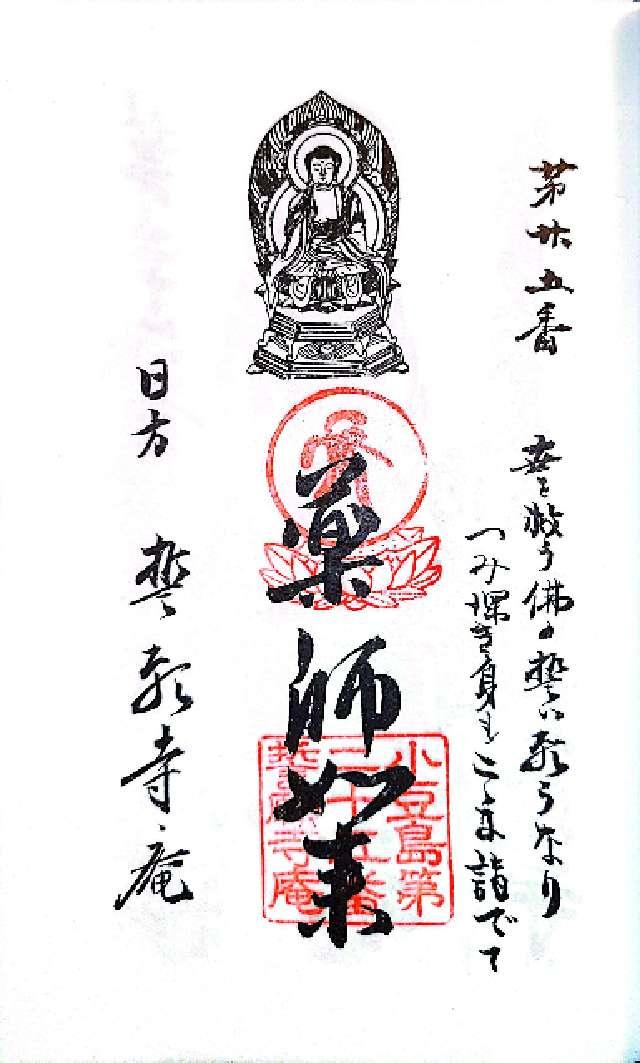 第廿五番
世を救う佛の誓い願うなり
つみ深き身もここに詣でて
薬師如来
小豆島第
二十五番
誓願寺庵
日方 誓願寺庵